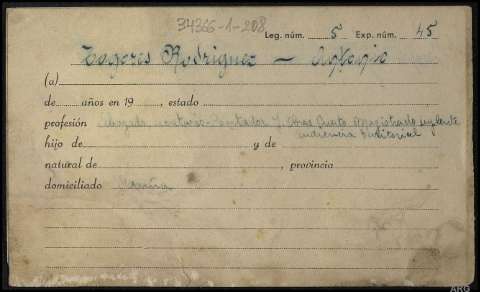 34366-1-208
Leg. núm. 5 Exp. núm. 45
Rodriguez — Antonio
(a)
de años en 19 , estado
profesión Abogado Contador J. Obras Puerto Magistrado suplente
audiencia territorial
hijo de y de
natural de , provincia
domiciliado Coruña
ARG